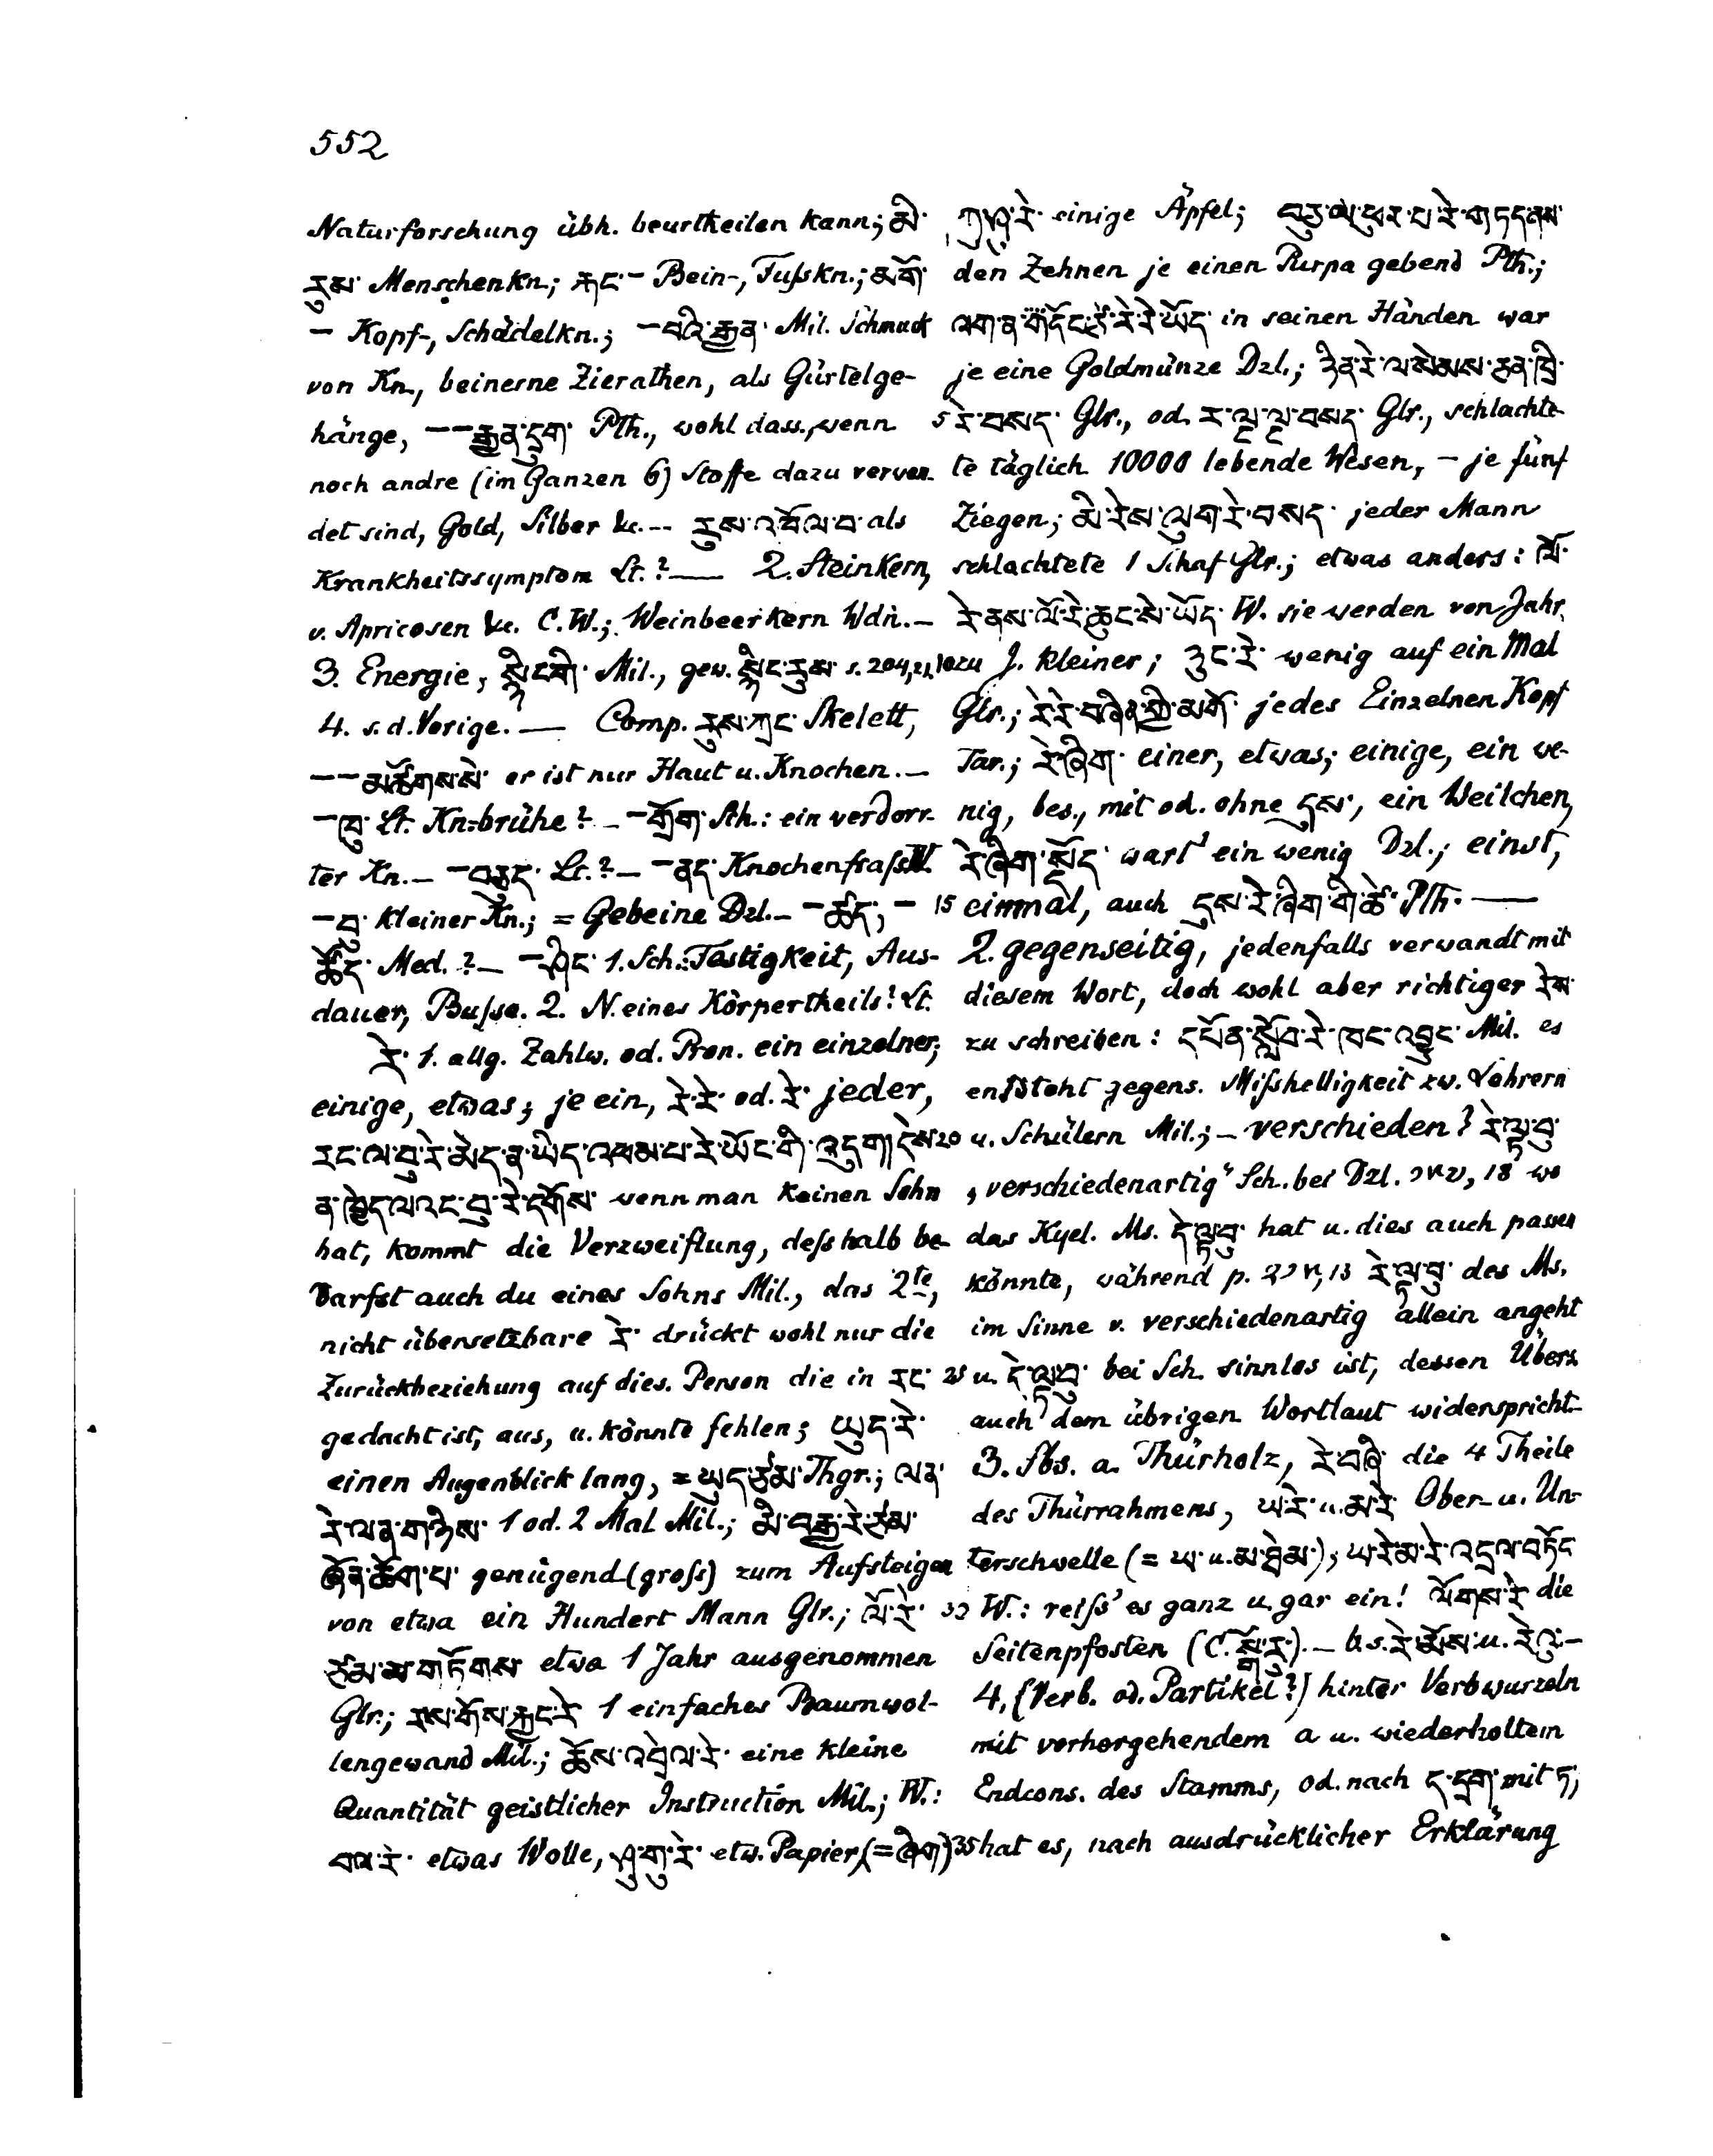 552
Naturforschung übh. beurtheilen kann; མི་
རུས་ Menschenkn.; རྐང་ – Bein-, Fußkn.; མགོ་
– Kopf-, Schädelkn.; – པའི་རྒྱན་ Mil. Schmuck
von Kn., beinerne Zierathen, als Gürtelge-
hänge, – – རྒྱན་དྲུག་ Pth., wohl dass., wenn
noch andre (im Ganzen 6) Stoffe dazu verwen-
det sind, Gold, Silber &c. – – རུས་འབོལ་བ་ als
Krankheitssymptom Lt.? — 2. Steinkern,
v. Apricosen &c. C.W.; Weinbeerkern Wdn. –
3. Energie, སྙིང་གི་ Mil., gew. སྙིང་རུས་ s. 204, 21,
4. s. d. Vorige. — Comp. རུས་ཀྲང་ Skelett,
– – མཚོགས་སེ་ er ist nur Haut u. Knochen. –
– ཁུ་ Lt. Kn=brühe? – – གྲོག་ Sch.: ein verdorr-
ter Kn. – – བརྩད་ Lt.? – – ནད་ Knochenfraß W.
– བུ་ kleiner Kn.; = Gebeine Dzl. – – ཚད་, –
ཚོད་ Med.? – – ཤིང་ 1. Sch.: Festigkeit, Aus-
dauer, Busse. 2. N. eines Körpertheils? Lt.
རེ་ 1. allg. Zahlw. od. Pron. ein einzelner;
einige, etwas; je ein, རེ་རེ་ od. རེ་ jeder,
རང་ལ་བུ་རེ་མེད་ན་ཡིད་འཕམ་པ་རེ་ཡོང་གི་འདུག། དེས་
ན་ཁྱེད་ལའང་བུ་རེ་དགོས་ wenn man keinen Sohn
hat, kommt die Verzweiflung, deßhalb be-
darfst auch du eines Sohns Mil., das 2te,
nicht übersetzbare རེ་ drückt wohl nur die
Zurückbeziehung auf dies. Person die in རང་
gedacht ist, aus, u. könnte fehlen; ཡུད་རེ་
einen Augenblick lang, = ཡུད་ཙམ་ Thgr.; ལན་
རེ་ལན་གཉིས་ 1 od. 2 Mal Mil.; མི་བརྒྱ་རེ་ཙམ་
ཞོན་ཆོག་པ་ genügend (groß) zum Aufsteigen
von etwa ein Hundert Mann Glr.; ལོ་རེ་
ཙམ་མ་གཏོགས་ etwa 1 Jahr ausgenommen
Glr.; རས་གོས་རྐྱང་རེ་ 1 einfaches Baumwol-
lengewand Mil.; ཆོས་འབྲེལ་རེ་ eine kleine
Quantität geistlicher Instruction Mil.; W.:
བལ་རེ་ etwas Wolle, ཤུ་གུ་རེ་ etw. Papier, (= ཞིག)
ཀུ་ཤུ་རེ་ einige Äpfel; བཅུ་ལ་ཕུར་པ་རེ་གཏད་ནས་
den Zehnen je einen Purpa gebend Pth.;
ལག་ན་གདོང་ཙེ་རེ་རེ་ཡོད་ in seinen Händen war
je eine Goldmünze Dzl.; ཉིན་རེ་ལ་སེམས་ཅན་ཁྲི་
5 རེ་བསད་ Glr., od. ར་ལྔ་ལྔ་བསད་ Glr., schlachte-
te täglich 10000 lebende Wesen, – je fünf
Ziegen; མི་རེས་ལུག་རེ་བསད་ jeder Mann
schlachtete 1 Schaf Glr.; etwas anders: ལོ་
རེ་ནས་ལོ་རེ་ཆུང་སེ་ཡོད་ W. sie werden von Jahr
10 zu J. kleiner; ཉུང་རེ་ wenig auf ein Mal
Glr.; རེ་རེ་བཞིན་གྱི་མགོ་ jedes Einzelnen Kopf
Tar.; རེ་ཞིག་ einer, etwas; einige, ein we-
nig, bes., mit od. ohne དུས་, ein Weilchen,
རེ་ཞིག་སྡོད་ wart' ein wenig Dzl.; einst,
15 einmal, auch དུས་རེ་ཞིག་གི་ཚེ་ Pth. —
2. gegenseitig, jedenfalls verwandt mit
diesem Wort, doch wohl aber richtiger རེས་
zu schreiben: དཔོན་སློབ་རེ་ཁང་འབྱུང་ Mil. es
entsteht gegens. Mißhelligkeit zw. Lehrern
20 u. Schülern Mil.; – verschieden? རེ་ལྟ་བུ་
„verschiedenartig" Sch. bei Dzl. 18 wo
das Kyel. Ms. དེ་ལྟ་བུ་ hat u. dies auch passen
könnte, während p. 13 རེ་ལྟ་བུ་ des Ms.
im Sinne v. verschiedenartig allein angeht
25 u. དེ་ལྟ་བུ་ bei Sch. sinnlos ist, dessen Übers.
auch dem übrigen Wortlaut widerspricht.
3. Sbs. a. Thürholz, རེ་བཞི་ die 4 Theile
des Thürrahmens, ཡ་རེ་ u. མ་རེ་ Ober- u. Un-
terschwelle (= ཡ་ u. མ་ཐེམ་); ཡ་རེ་མ་རེ་འདྲལ་བཏོང་
30 W.: reiß' es ganz u. gar ein! ལོགས་རེ་ die
Seitenpfosten (C. སྒོ་རུ་). – b. s. རེ་མོས་ u. རེའུ་ –
4. (Verb. od. Partikel?) hinter Verbwurzeln
mit vorhergehendem a u. wiederholtem
Endcons. des Stamms, od. nach ད་དྲག་ mit ཏ,
35 hat es, nach ausdrücklicher Erklärung